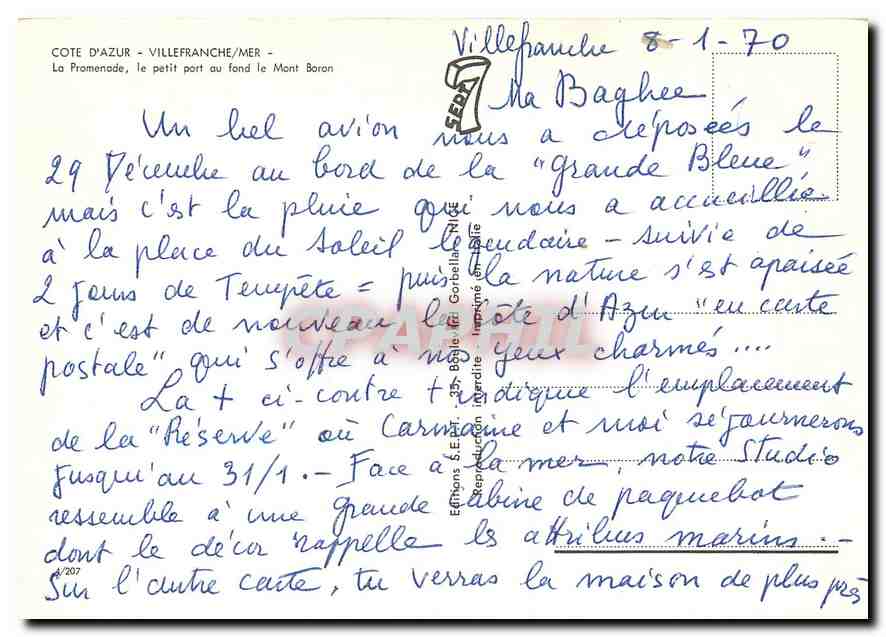 COTE D'AZUR - VILLEFRANCHE/MER -
La Promenade, le petit port au fond le Mont Boron
Villefranche 8-1-70
Ma Baghee
Un bel avion nous a déposées le
29 Décembre au bord de la "Grande Bleue"
mais c'est la pluie qui nous a accueillie
à la place du soleil légendaire - suivie de
2 jours de Tempête = puis la nature s'est apaisée
et c'est de nouveau la Côte d'Azur "en carte
postale" qui s'offre à nos yeux charmés....
La + ci-contre + indique l'emplacement
de la "Réserve" où Carmaine et moi séjournerons
jusqu'au 31/1.- Face à la mer, notre Studio
ressemble à une grande cabine de paquebot
dont le décor rappelle les attributs marins.-
Sur l'autre carte, tu verras la maison de plus près
SEPT
Editions S.E.P.T. - 35, Boulevard Gorbella - NICE
Reproduction interdite Imprimé en Italie
CPAPHIL
4/207